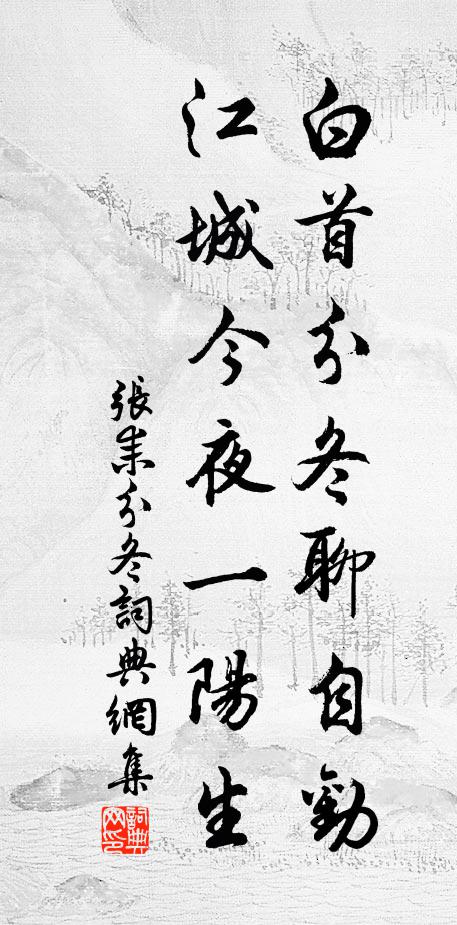 白首分冬聊自勸
江城今夜一陽生
張耒分冬詞典網集
詞典網印